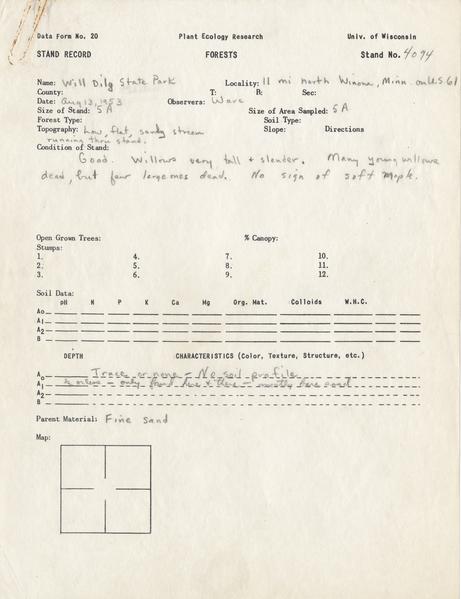 Data Form No. 20 Plant Ecology Research Univ. of Wisconsin
STAND RECORD FORESTS Stand No. 4094
Name: Will Dilg State Park Locality: 11 mi north Winona, Minn. on U.S. 61
County: T: R: Sec:
Date: Aug 13, 1953 Observers: Ware
Size of Stand: 5 A Size of Area Sampled: 5 A
Forest Type: Soil Type:
Topography: Low, flat, sandy stream Slope: Directions
running thru stand.
Condition of Stand:
Good. Willows very tall + slender. Many young willows
dead, but few large ones dead. No sign of soft Maple.
Open Grown Trees: % Canopy:
Stumps:
1. 4. 7. 10.
2. 5. 8. 11.
3. 6. 9. 12.
Soil Data:
pH N P K Ca Mg Org. Mat. Colloids W.H.C.
Ao
A1
A2
B
DEPTH CHARACTERISTICS (Color, Texture, Structure, etc.)
Ao Trace or none - No soil profile
A1 - only found here + there - mostly bare sand
A2
B
Parent Material: Fine sand
Map: